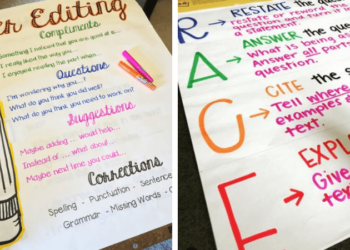 er Editing
Compliments
Something I noticed that you are good at is...
I really liked the way you...
I enjoyed reading the part when
Questions
I'm wondering why you...
What do you think you did well?
What do you think you need to work on?
Suggestions
Maybe adding ... would help...
Instead of ... what about ...
Maybe next time you could...
Corrections
Spelling - Punctuation - Sentence
Grammar - Missing Words -
R → RESTATE the
restate or reword the
question and turn it
a statement.
A → ANSWER the question
What is being as
Answer all part
question.
C → CITE the s
Tell where
examples
text.
E → EXPL
Give
text